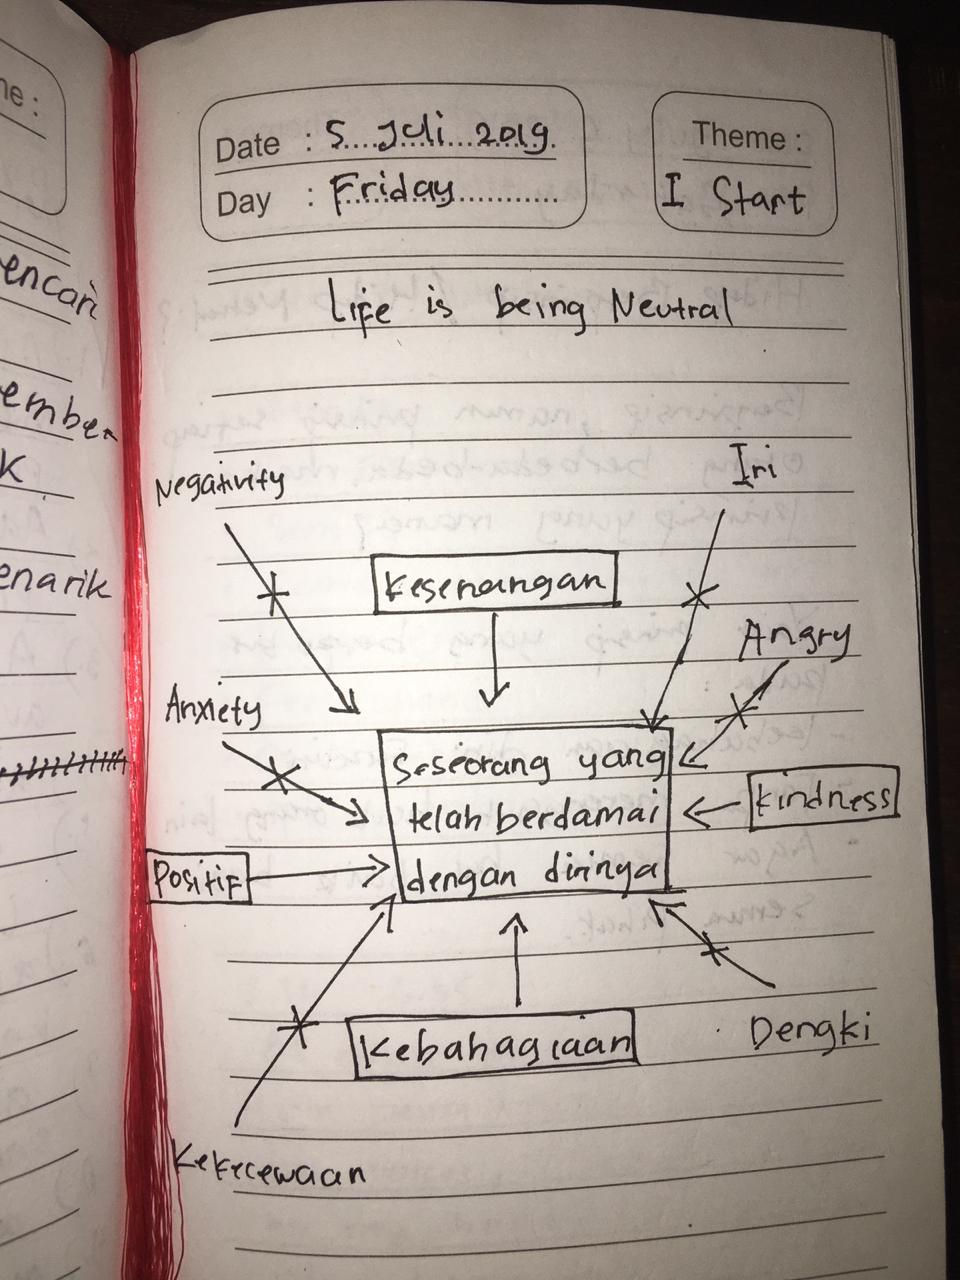 ne :
encari
ember
k
enarik
Date : 5 Juli 2019
Day : Friday
Theme :
I Start
Life is being Neutral
Negativity
Iri
Kesenangan
Angry
Anxiety
Seseorang yang
telah berdamai
dengan dirinya
Kindness
Positif
Kebahagiaan
Dengki
Kekecewaan